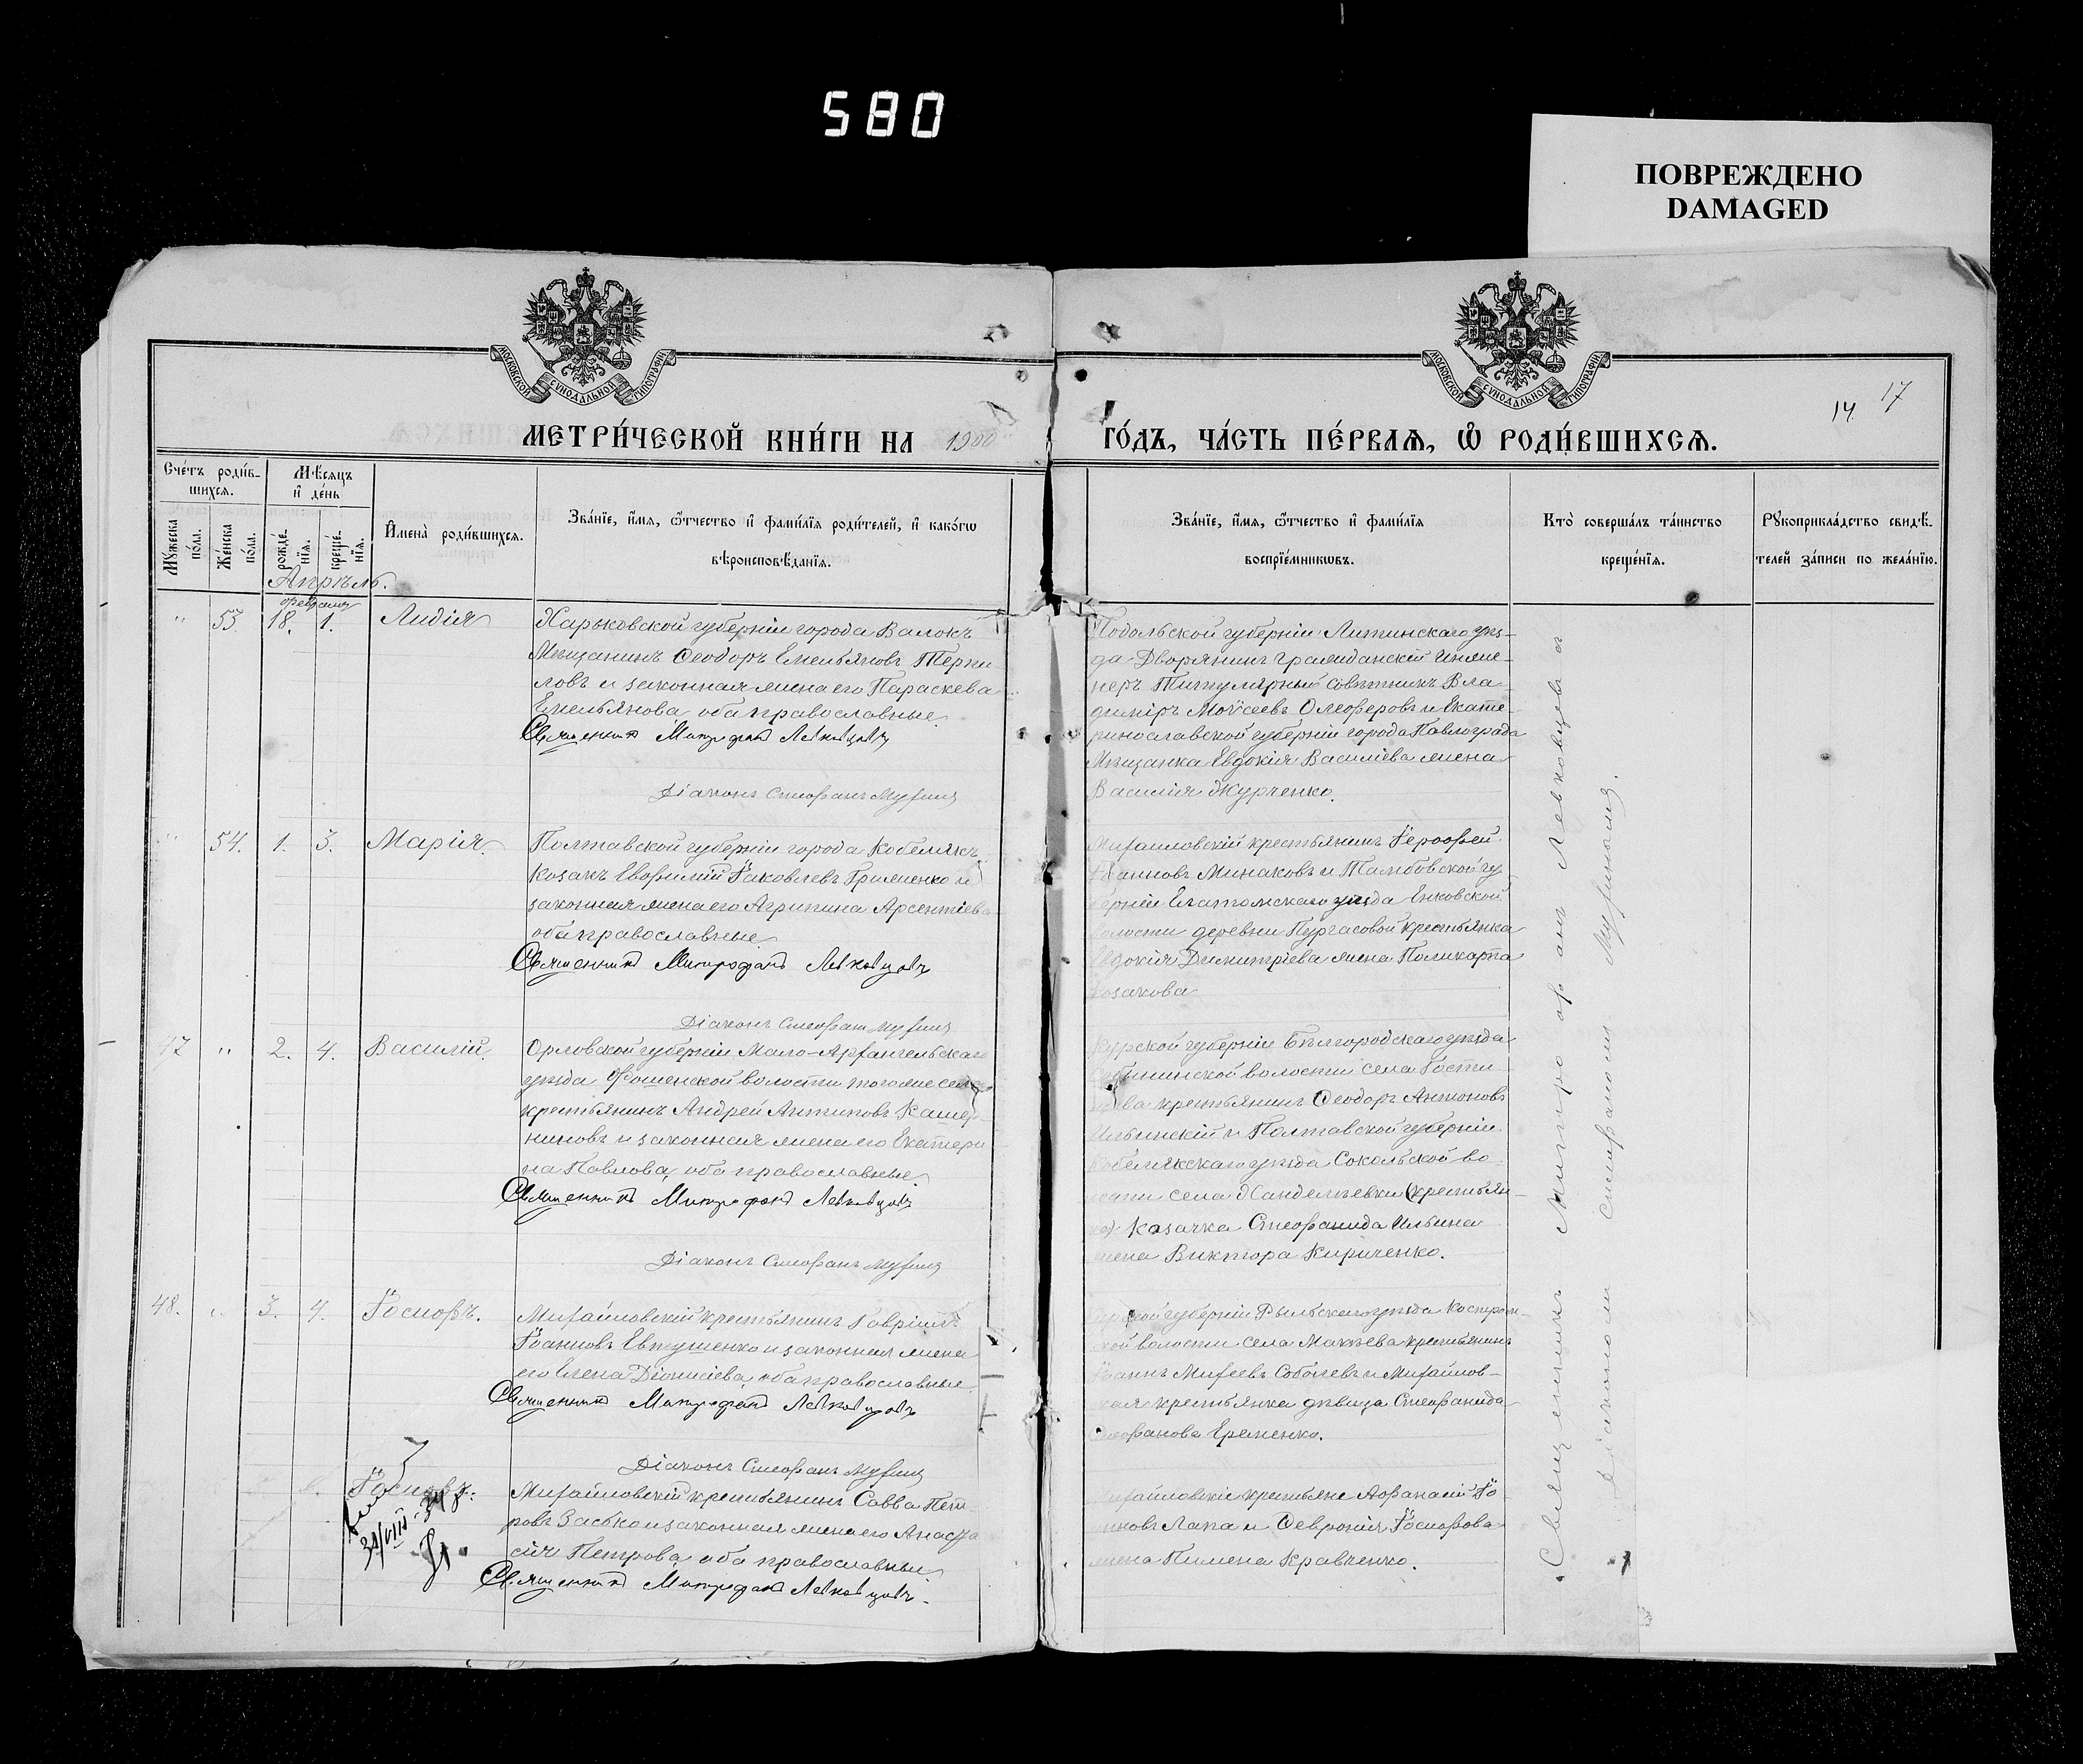 580
ПОВРЕЖДЕНО
DAMAGED
МОСКОВСКОЙ СУНОДАЛЬНОЙ ТИПОГРАФІИ
МОСКОВСКОЙ СУНОДАЛЬНОЙ ТИПОГРАФІИ
14 17
МЕТРИ́ЧЕСКОЙ КНИ́ГИ НА 1900
ГО́ДЪ, ЧА́СТЬ ПЕ́РВАѦ, Ѡ РОДИ́ВШИХСѦ.
Сче́тъ роди́в-
шихсѧ.
Мꙋ́жеска по́ла.
Же́нска по́ла.
Мѣ́сѧцъ
и҆ де́нь
рожде́-
нїѧ.
креще́-
нїѧ.
И҆мена̀ роди́вшихсѧ.
Зва́нїе, и҆́мѧ, ѻ҆́тчество и҆ фами́лїѧ роди́телей, и҆ како́гѡ
вѣроисповѣ́данїѧ.
Зва́нїе, и҆́мѧ, ѻ҆́тчество и҆ фами́лїѧ
воспрїе́мникѡвъ.
Кто̀ соверша́лъ та́инство
креще́нїѧ.
Рꙋкоприкла́дство свидѣ́-
телей за́писи по жела́нїю.
Апрѣль.
февраля
" 53 18. 1. Лидія
Харьковской губерніи города Валокъ
Мѣщанинъ Ѳеодоръ Емельяновъ Терпи
ловъ и законная жена его Параскева
Емельянова, оба православные.
Священникъ Митрофанъ Левковцевъ
Діаконъ Стефанъ
Подольской губерніи Литинскаго уѣз-
да Дворянинъ гражданскій Инже-
неръ Титулярный совѣтникъ Вла-
диміръ Моѵсеевъ Олеферовъ и Екате-
ринославской губерніи города Павлограда
Мѣщанка Евдокія Василіева жена
Василія Журченко.
" 54. 1. 3. Марія.
Полтавской губерніи города Кобелякъ
Козакъ Евфимій Іаковлевъ Гриженко и
законная жена его Агрипина Арсентіева
оба православные.
Священникъ Митрофанъ Левковцевъ
Діаконъ Стефанъ
Михаиловскій крестьянинъ Іерофей
Іоанновъ Минаковъ и Тамбовской гу
берніи Елатомскаго уѣзда Енковской
волости деревни Пургасовой крестьянка
Евдокія Димитріева жена Поликарпа
Козакова
47 " 2. 4. Василій.
Орловской губерніи Мало-Архангельскаго
уѣзда Фошенской волости того же села
крестьянинъ Андрей Антиповъ
и законная жена его Екатери
на Павлова, оба православные.
Священникъ Митрофанъ Левковцевъ
Діаконъ Стефанъ
Курской губерніи Бѣлгородскаго уѣзда
волости села Гости-
щева крестьянинъ Ѳеодоръ Антоновъ
Ильинскій и Полтавской губерніи
Кобелякскаго уѣзда Сокольской во-
лости села (крестьян-
ка) Козачка Стефанида Ильина
жена Виктора Кириченко.
48. " 3. 4. Іосифъ.
Михайловскій крестьянинъ Гавріилъ
Іоанновъ Евтушенко и законная жена
его Елена Діонисіева, оба православные.
Священникъ Митрофанъ Левковцевъ
Діаконъ Стефанъ
Курской губерніи Рыльскаго уѣзда
волости села Макѣева крестьянинъ
Іоаннъ Михеевъ Соболевъ и Михайлов-
ская крестьянка дѣвица Стефанида
Стефанова Еременко.
Іосифъ.
31/VIII-34 г.
Михайловскій крестьянинъ Савва Пет
ровъ Засько и законная жена его Анаста
сія Петрова, оба православные.
Священникъ Митрофанъ Левковцевъ.
Михайловскіе крестьяне Аѳанасій Іо
анновъ Лапа и Ѳевронія Іосифова
жена Пимена Кравченко.
Священникъ Митрофанъ Левковцевъ и
Діакономъ Стефаномъ